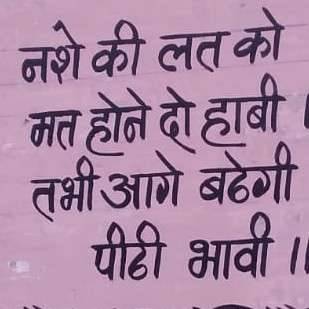 नशे की लत को
मत होने दो हाबी ।
तभी आगे बढेगी
पीढी भावी ।।